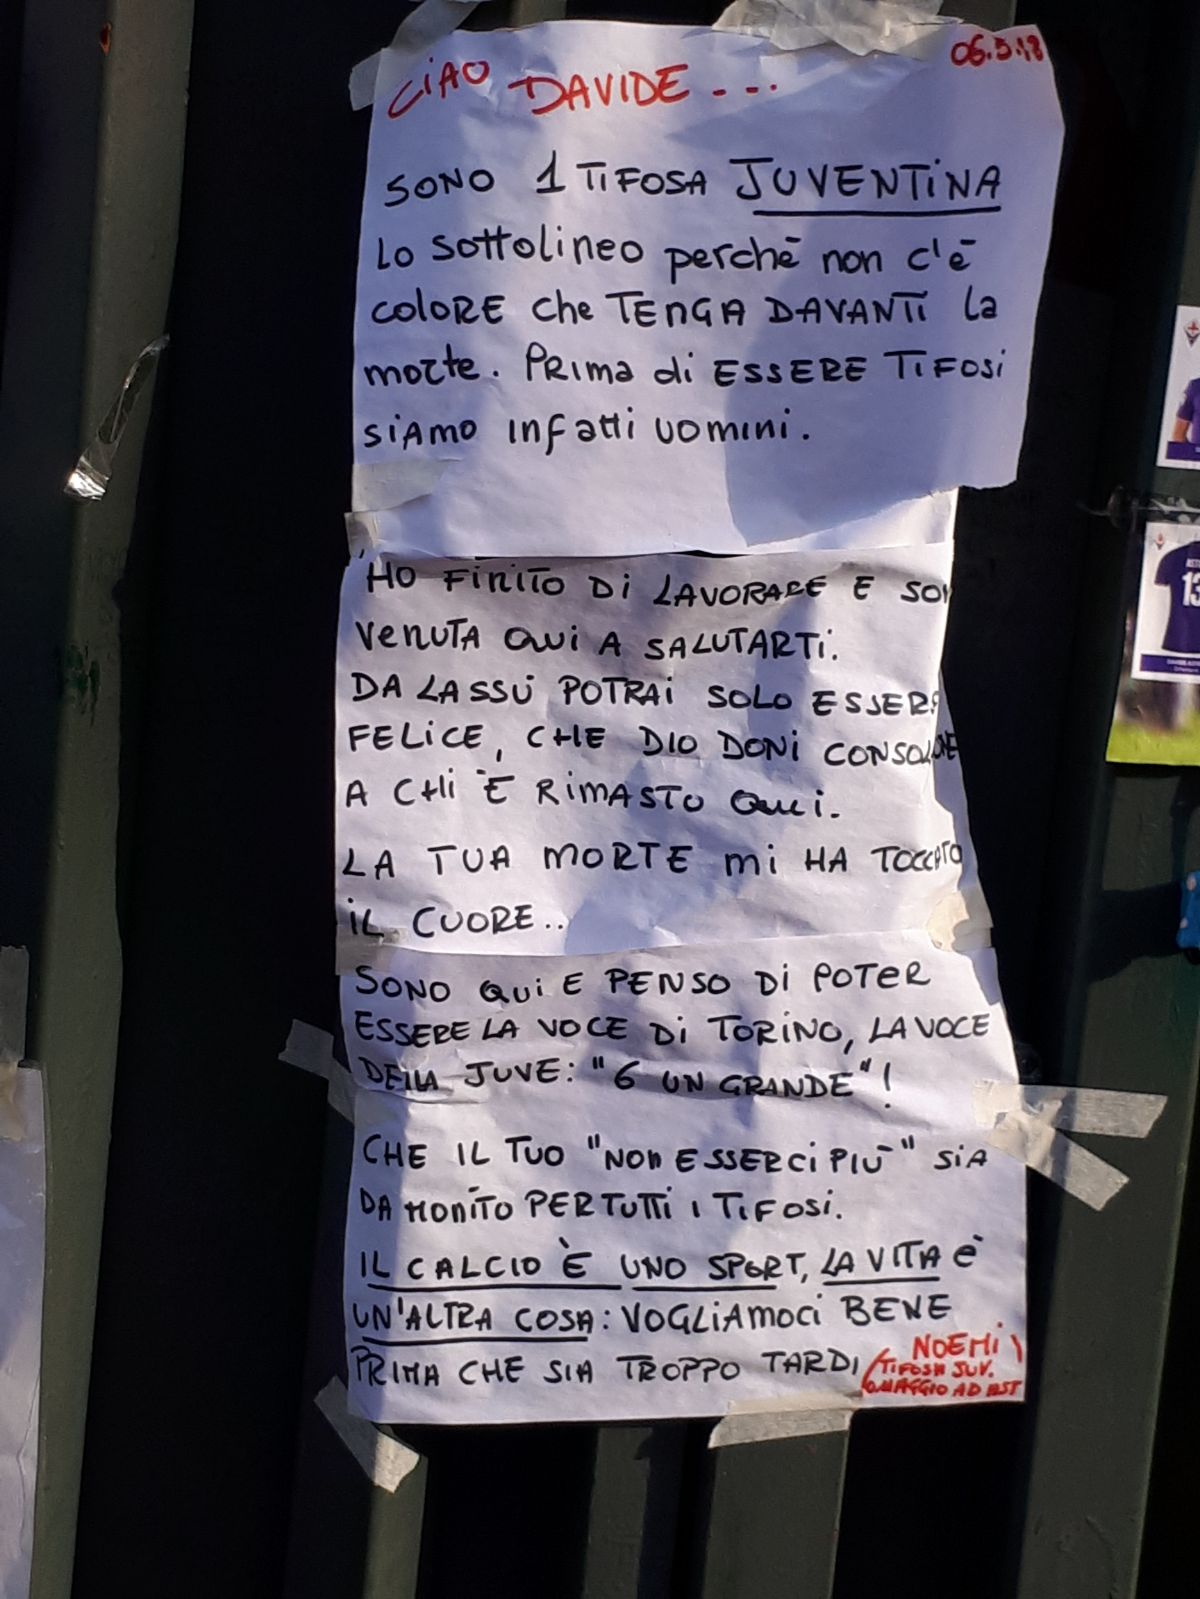 06.3.18
CIAO DAVIDE...
SONO 1 TIFOSA JUVENTINA
Lo sottolineo perchè non c'è
colore che TENGA DAVANTI la
morte. Prima di ESSERE TIFOSI
siamo infatti uomini.
HO FINITO DI LAVORARE E SON
VENUTA QUI A SALUTARTI.
DA LASSÙ POTRAI SOLO ESSERE
FELICE, CHE DIO DONI
A CHI È RIMASTO QUI.
LA TUA MORTE MI HA TOCCATO
IL CUORE..
SONO QUI E PENSO DI POTER
ESSERE LA VOCE DI TORINO, LA VOCE
DELLA JUVE: "6 UN GRANDE"!
CHE IL TUO "NON ESSERCI PIÙ" SIA
DA MONITO PER TUTTI I TIFOSI.
IL CALCIO È UNO SPORT, LA VITA È
UN'ALTRA COSA: VOGLIAMOCI BENE
PRIMA CHE SIA TROPPO TARDI
NOEMI
TIFOSA JUV.
OMAGGIO AD AST
13